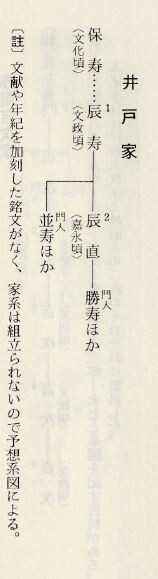 井戸家
保寿……辰寿 1
(文化頃) (文政頃)
辰直 2
(嘉永頃)
門人
勝寿ほか
門人
並寿ほか
〔註〕文献や年紀を加刻した銘文がなく、家系は組立られないので予想系図による。